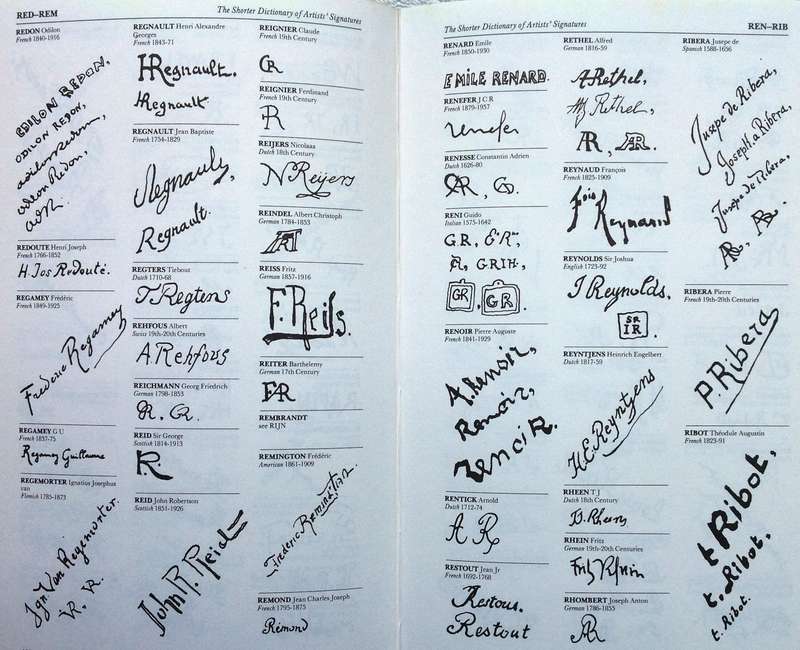 RED–REM
The Shorter Dictionary of Artists' Signatures
REDON Odilon
French 1840-1916
ODILON REDON,
ODILON REDON,
odilon Redon,
odilon Redon,
REDOUTE Henri Joseph
French 1766-1852
H. Jos Redouté.
REGAMEY Frédéric
French 1849-1925
Frédéric Regamey
REGAMEY G U
French 1837-75
Regamey Guillaume
REGEMORTER Ignatius Josephus
van
Flemish 1785-1873
Ign Van Regemorter.
REGNAULT Henri Alexandre
Georges
French 1843-71
HRegnault.
HRegnault
REGNAULT Jean Baptiste
French 1754-1829
Regnault,
Regnault.
REGTERS Tiebout
Dutch 1710-68
T. Regters
REHFOUS Albert
Swiss 19th-20th Centuries
A. Rehfous
REICHMANN Georg Friedrich
German 1798-1853
R, R.
REID Sir George
Scottish 1814-1913
R.
REID John Robertson
Scottish 1851-1926
John R. Reid
REIGNIER Claude
French 19th Century
CR
REIGNIER Ferdinand
French 19th Century
REIJERS Nicolaas
Dutch 18th Century
N Reijers
REINDEL Albert Christoph
German 1784-1853
REISS Fritz
German 1857-1916
F. Reiss.
REITER Barthelemy
German 17th Century
REMBRANDT
see RIJN
REMINGTON Frédéric
American 1861-1909
Frederic Remington
REMOND Jean Charles Joseph
French 1795-1875
Rémond
The Shorter Dictionary of Artists' Signatures
REN–RIB
RENARD Emile
French 1850-1930
EMILE RENARD.
RENEFER J C R
French 1879-1957
Renefer
RENESSE Constantin Adrien
Dutch 1626-80
RENI Guido
Italian 1575-1642
G.R,
R, G.RIH,
GR, G R
RENOIR Pierre Auguste
French 1841-1929
A. Renoir,
Renoir,
Renoir.
RENTICK Arnold
Dutch 1712-74
A R
RESTOUT Jean Jr
French 1692-1768
Restous.
Restout
RETHEL Alfred
German 1816-59
A Rethel,
Rethel,
AR, AR.
REYNAUD François
French 1825-1909
Fois Reynaud
REYNOLDS Sir Joshua
English 1723-92
J Reynolds,
SR
IR.
REYNTJENS Heinrich Engelbert
Dutch 1817-59
H.E. Reyntjens
RHEEN T J
Dutch 18th Century
RHEIN Fritz
German 19th-20th Centuries
Fritz Rhein
RHOMBERT Joseph Anton
German 1786-1855
AR
RIBERA Jusepe de
Spanish 1588-1656
Jusepe de Ribera,
Joseph. a Ribera,
Jusepe de Ribera.
RIBERA Pierre
French 19th-20th Centuries
P. Ribera
RIBOT Théodule Augustin
French 1823-91
t Ribot,
t. Ribot,
t. Ribot.